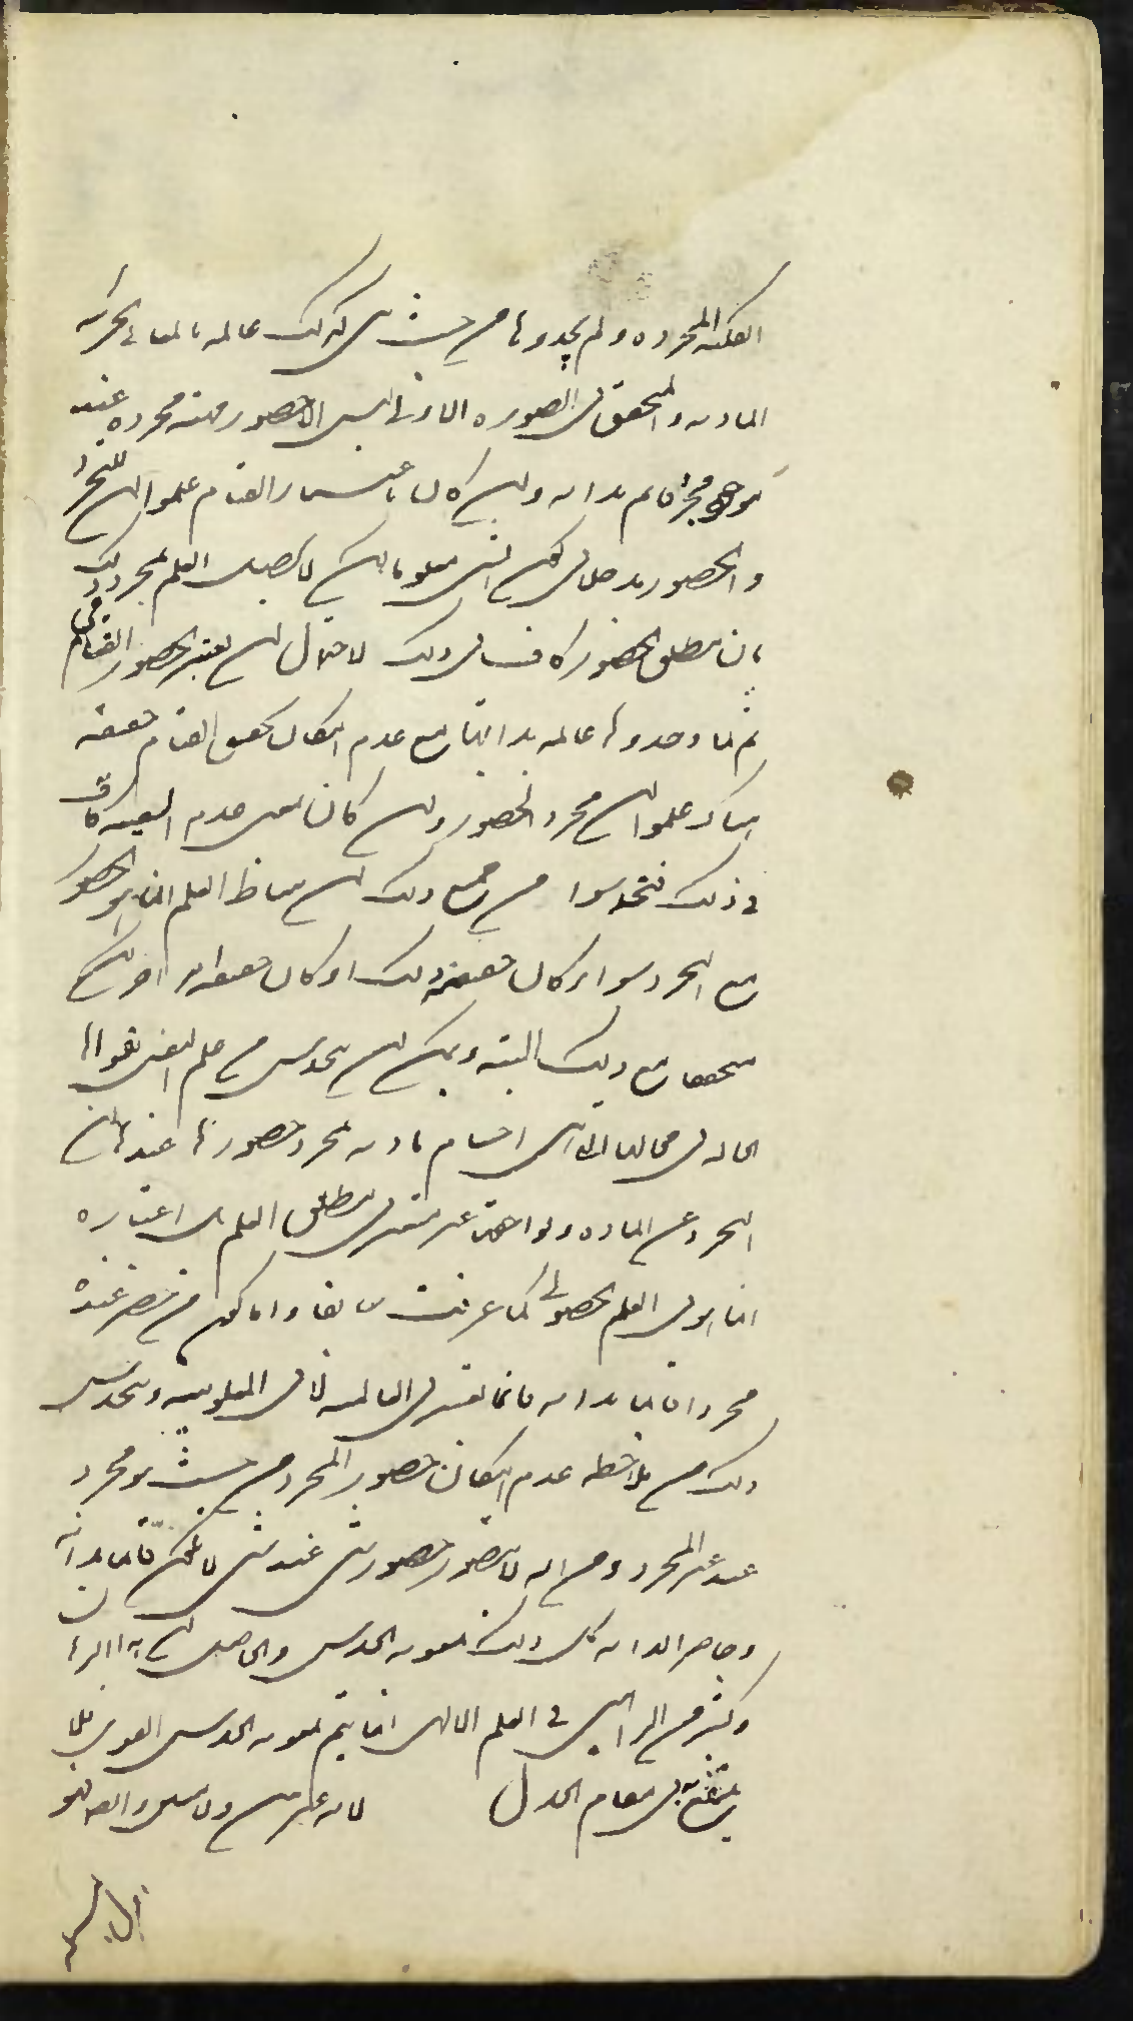 الفلكية المجردة ولم يجدوها من حيث هي كذلك عالمة بالمعاني الجزئية
المادية والمتحقق في الصورة الاولى ليس الا حضور مهية مجردة عند
موجود مجرد قائم بذاته وان كان باعتبار القيام علموا ان للتجرد
والحضور مدخلا في كون الشي معلوما لكن لا يحصل العلم بمجرد ذلك
بان مطلق الحضور كاف في ذلك لاحتمال ان يعتبر الحضور القيامي
ثم لما وجدوها عالمة بذاتها مع عدم امكان تحقق القيام حقيقة
هناك علموا ان مجرد الحضور وان كان بمعنى عدم الغيبة كاف
في ذلك فتحدسوا من جميع ذلك ان مناط العلم انما هو الحضور
مع التجرد سواء كان حقيقة ذلك او كان حقيقة امر اخر لكن
متحققا مع ذلك البتة ويمكن ان يتحدس من علم النفس بقواها
الحالة في محالها التي هي اجسام مادية بمجرد حضورها عندها ان
التجرد عن المادة ولواحقها غير معتبر في مطلق العلم بل اعتباره
انما هو في العلم الحصولي كما عرفت سابقا واما كون من حضر عنده
مجردا قائما بذاته فانما يعتبر في العالمية لا في المعلومية ويتحدس
ذلك من ملاحظة عدم امكان حضور المجرد من حيث هو مجرد
عند غير المجرد ومن انه لا يتصور حضور شي عند شي لا يكون قائما بذاته
وحاضرا لذاته كل ذلك بمعونة الحدس والحاصل ان هذا البرهان
وكثير من البراهين في العلم الالهي انما يتم بمعونة الحدس القوي فلا
ينتفع به في مقام الجدل